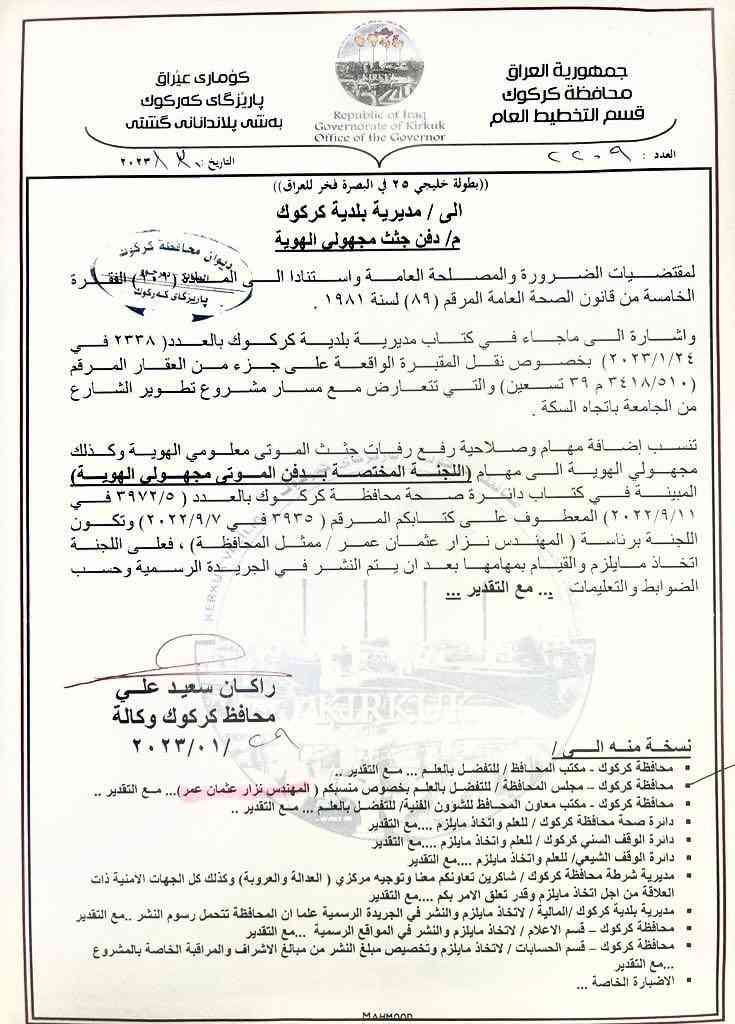 جمهورية العراق
محافظة كركوك
قسم التخطيط العام
KIRKUK
Republic of Iraq
Governorate of Kirkuk
Office of the Governor
كۆماری عێراق
پارێزگای كەركوك
بەشی پلاندانانی گشتی
العدد : ٢٢٠٩
التاريخ : / / ٢٠٢٣
((بطولة خليجي ٢٥ في البصرة فخر للعراق))
الى / مديرية بلدية كركوك
م/ دفن جثث مجهولي الهوية
ديوان محافظة كركوك
پارێزگای كەركوك
لمقتضيات الضرورة والمصلحة العامة واستنادا الى المادة الفقرة
الخامسة من قانون الصحة العامة المرقم (٨٩) لسنة ١٩٨١ .
واشارة الى ماجاء في كتاب مديرية بلدية كركوك بالعدد( ٢٣٣٨ في
٢٠٢٣/١/٢٤) بخصوص نقل المقبرة الواقعة على جزء من العقار المرقم
(٣٤١٨/٥١٠ م ٣٩ تسعين) والتي تتعارض مع مسار مشروع تطوير الشارع
من الجامعة باتجاه السكة .
تنسب إضافة مهام وصلاحية رفع رفات جثث الموتى معلومي الهوية وكذلك
مجهولي الهوية الى مهام (اللجنة المختصة بدفن الموتى مجهولي الهوية)
المبينة في كتاب دائرة صحة محافظة كركوك بالعدد ( ٣٩٧٢/٥ في
٢٠٢٢/٩/١١) المعطوف على كتابكم المرقم ( ٣٩٣٥ في ٢٠٢٢/٩/٧) وتكون
اللجنة برئاسة ( المهندس نزار عثمان عمر / ممثل المحافظة) ، فعلى اللجنة
اتخاذ مايلزم والقيام بمهامها بعد ان يتم النشر في الجريدة الرسمية وحسب
الضوابط والتعليمات ... مع التقدير ...
راكان سعيد علي
محافظ كركوك وكالة
٢٩ /٢٠٢٣/٠١
نسخة منه الى /
▪ محافظة كركوك - مكتب المحافظ / للتفضل بالعلم ... مع التقدير ..
▪ محافظة كركوك – مجلس المحافظة / للتفضل بالعلم بخصوص منسبكم ( المهندس نزار عثمان عمر)... مع التقدير ..
▪ محافظة كركوك - مكتب معاون المحافظ للشؤون الفنية/ للتفضل بالعلم ... مع التقدير ..
▪ دائرة صحة محافظة كركوك / للعلم واتخاذ مايلزم ....مع التقدير
▪ دائرة الوقف السني كركوك / للعلم واتخاذ مايلزم ....مع التقدير
▪ دائرة الوقف الشيعي/ للعلم واتخاذ مايلزم ....مع التقدير
▪ مديرية شرطة محافظة كركوك / شاكرين تعاونكم معنا وتوجيه مركزي ( العدالة والعروبة) وكذلك كل الجهات الامنية ذات
العلاقة من اجل اتخاذ مايلزم وقدر تعلق الامر بكم ....مع التقدير
▪ مديرية بلدية كركوك /المالية / لاتخاذ مايلزم والنشر في الجريدة الرسمية علما ان المحافظة تتحمل رسوم النشر ..مع التقدير
▪ محافظة كركوك – قسم الاعلام / لاتخاذ مايلزم والنشر في المواقع الرسمية ...مع التقدير
▪ محافظة كركوك – قسم الحسابات / لاتخاذ مايلزم وتخصيص مبلغ النشر من مبالغ الاشراف والمراقبة الخاصة بالمشروع
...مع التقدير
▪ الاضبارة الخاصة ...
MAHMOOD